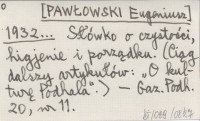 [PAWŁOWSKI Eugeniusz]
1932... Słówko o czystości,
higjenie i porządku. (Ciąg
dalszy artykułów: "O kul-
turę Podhala".) — Gaz. Podh.
20, nr 11.